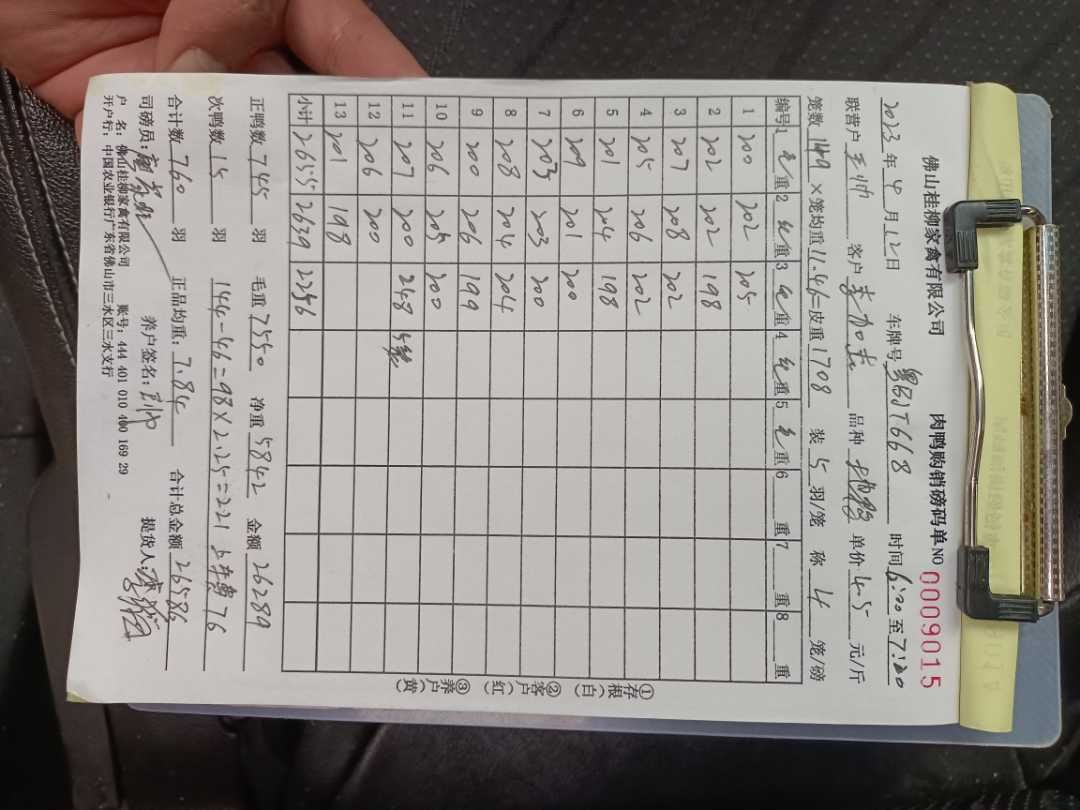 佛山桂柳家禽有限公司 肉鸭购销磅码单 NO 0009015
2023年4月12日 车牌号 粤BJT668 时间 6:20至7:20
联营户 王帅 客户 李加志 品种 单价 4.5 元/斤
笼数 149 ×笼均重 11.46=皮重 1708 装 5 羽/笼 称 4 笼/磅
编号 1 毛重 2 毛重 3 毛重 4 毛重 5 毛重 6 重 7 重 8 重
1 200 202 205
2 202 202 198
3 207 208 202
4 205 206 202
5 201 204 198
6 209 201 200
7 203 203 200
8 208 204 204
9 200 206 199
10 206 205 200
11 207 200 248 5笼
12 206 200
13 201 198
小计 2655 2639 2256
正鸭数 745 羽 毛重 7550 净重 5842 金额 26289
次鸭数 15 羽 144-46=98×2.25=221 76
合计数 760 羽 正品均重: 7.84 合计总金额 26586
司磅员: 养户签名: 王帅 提货人:
户 名: 佛山桂柳家禽有限公司 账号: 444 401 010 400 169 29
开户行: 中国农业银行广东省佛山市三水区三水支行
①存根(白) ②客户(红) ③养户(黄)